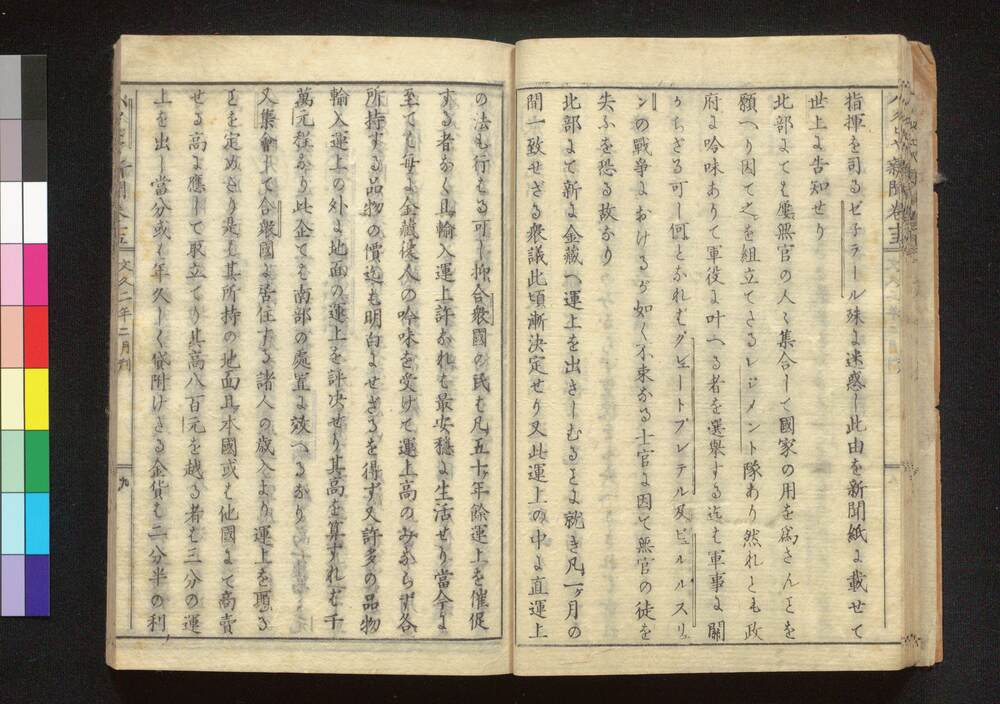 指揮を司るゼ子ラール殊に迷惑し此由を新聞紙に載せて
世上に告知せり
北部にても屢無官の人々集合して國家の用を爲さんとを
願へり因て之を組立てたるレジメント隊あり然れとも政
府に吟味ありて軍役に叶へる者を選擧する迄は軍事に關
からざる可し何となれば グレートブレテル及ビュルルスリ
ンの戰爭におけるが如く不束なる士官に因て無官の徒を
失ふを恐る故なり
北部にて新に金藏へ運上を出さしむるとに就き凡一ヶ月の
間一致せざる衆議此頃漸決定せり又此運上の中に直運上
の法も行はる可し抑合衆國の民は凡五十年餘運上を催促
する者なく且輸入運上許なれは最安穩に生活せり當今に
至ても毎に金藏役人の吟味を受けて運上高のみならず各
所持する品物の價迄も明白にせざるを得ず又許多の品物
輸入運上の外に地面の運上を評决せり其高を算すれば千
萬元程なり此金ても南部の處置に效へるなり
又集會して合衆國に居住する諸人の歳入より運上を取る
とを定めたり是は其所持の地面且本國或は他國にて商賣
せる高に應して取立てり其高八百元を越る者は三分の運
上を出し當分或は年久しく貸附けたる金貨は二分半の利
新聞卷十五
文久二年二月刊
九